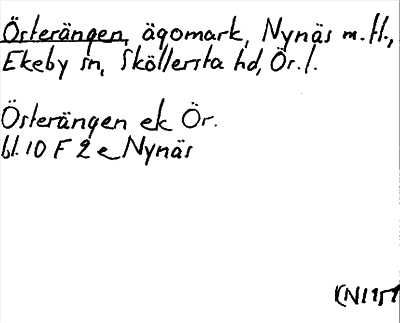 Österängen, ägomark, Nynäs m.fl.,
Ekeby sn, Sköllersta hd, Ör.l.
Österängen ek Ör.
bl. 10 F 2 e Nynäs